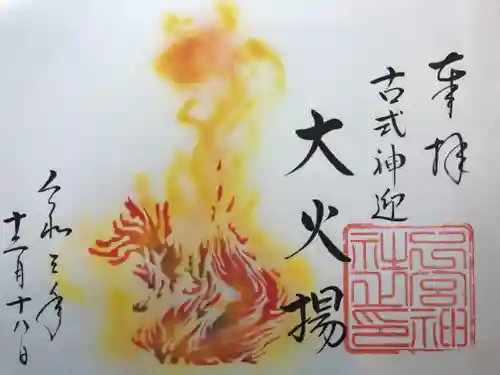 奉拝
古式神迎
大火揚
令和三年
十二月十八日